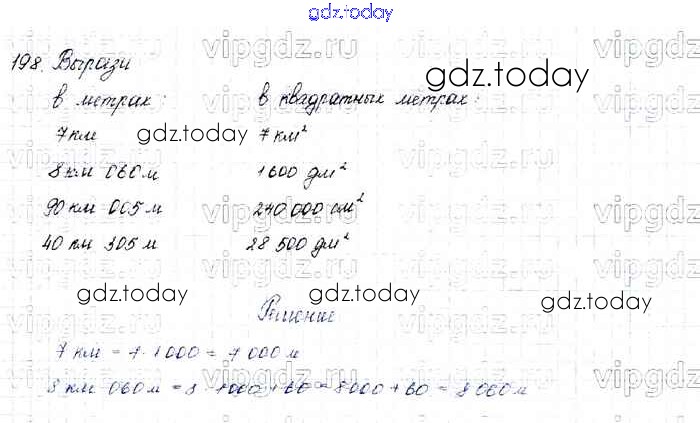 gdz.today
198. Вырази
в метрах: в квадратных метрах:
7 км 7 км²
8 км 060 м 1600 дм²
90 км 005 м 240 000 см²
40 км 305 м 28 500 дм²
Решение
7 км = 7·1000 = 7 000 м
8 км 060 м = 8·1000 + 60 = 8000 + 60 = 8 060 м
vipgdz.ru
gdz.today
gdz.today
gdz.today
gdz.today
gdz.today